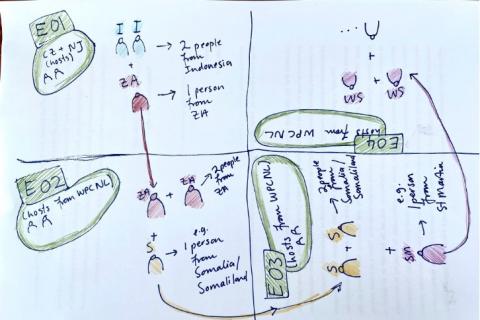 E01
CZ + NJ
(hosts)
A A
I I
→ 2 people
from
Indonesia
+
ZA
→ 1 person
from
ZA
E02
(hosts from WPCNL)
A A
ZA + ZA
→ 2 people
from
ZA
+
S
e.g.
→ 1 person
from
Somalia/
Somaliland
E03
(hosts from WPCNL)
S S
→ 2 people
from
Somalia/
Somaliland
+
SM
e.g.
→ 1 person
from
St Martin
E04
hosts from WPCNL
SM + SM
+
...